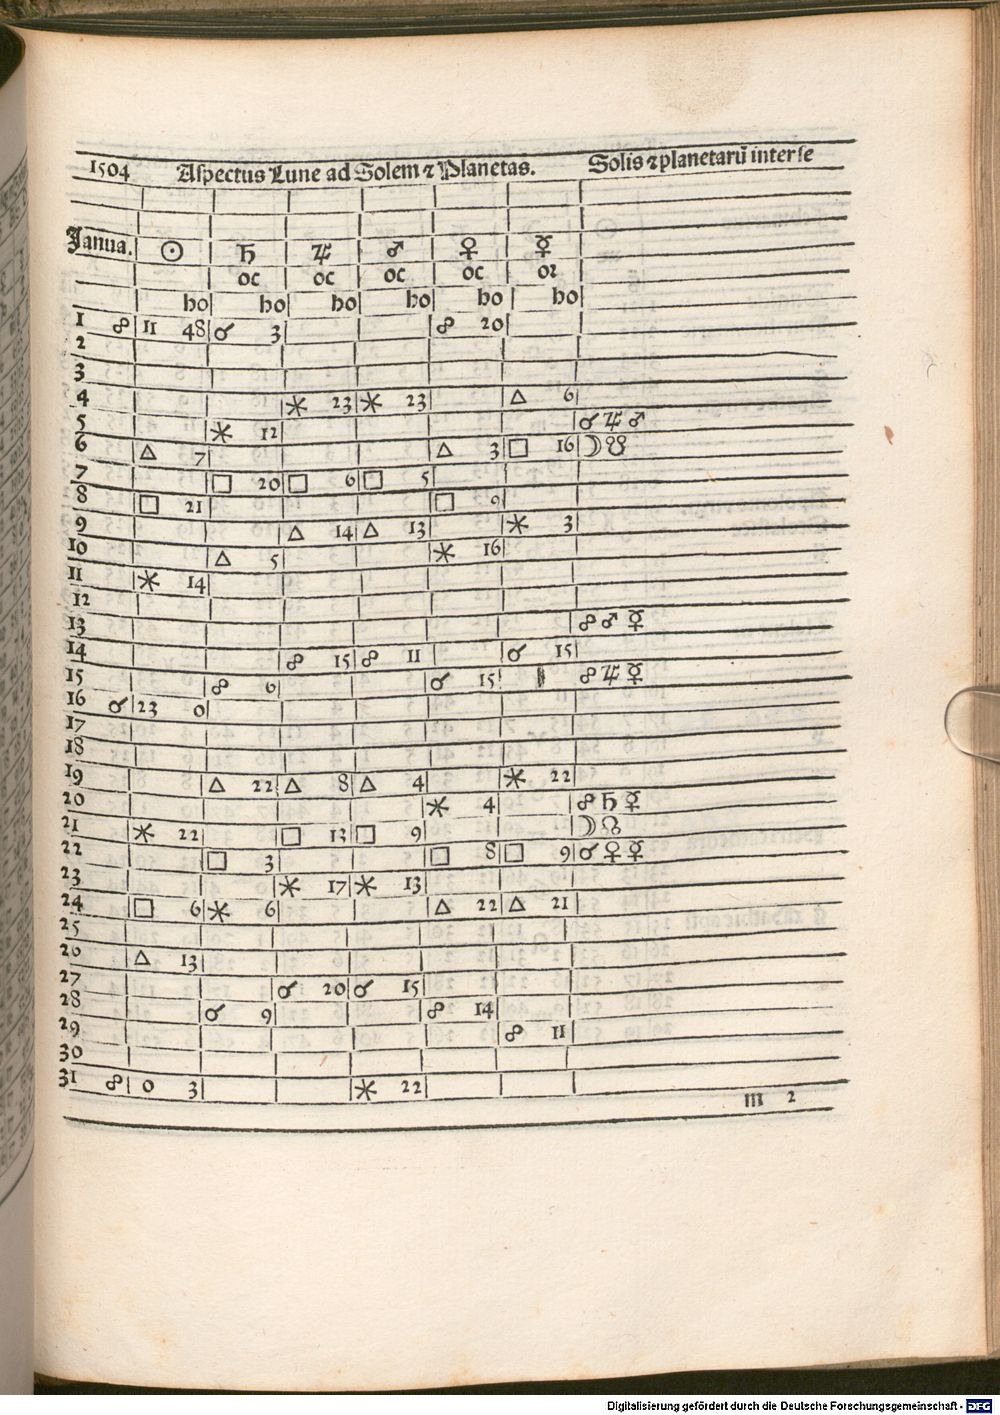 1504 Aſpectus Lune ad Solem ⁊ Planetas. Solis ⁊ planetarū inter ſe
Janua. ☉ ♄ ♃ ♂ ♀ ☿
oc oc oc oc oꝛ
ho ho ho ho ho ho
1 ☍ 11 48 ☌ 3 ☍ 20
2
3
4 ⚹ 23 ⚹ 23 △ 6
5 ⚹ 12 ☌ ♃ ♂
6 △ 7 △ 3 □ 16 ☽ ☋
7 □ 20 □ 6 □ 5
8 □ 21 □ 9
9 △ 14 △ 13 ⚹ 3
10 △ 5 ⚹ 16
11 ⚹ 14
12
13 ☍ ♂ ☿
14 ☍ 15 ☍ 11 ☌ 15
15 ☍ 6 ☌ 15 ☍ ♃ ☿
16 ☌ 23 0
17
18
19 △ 22 △ 8 △ 4 ⚹ 22
20 ⚹ 4 ☍ ♄ ☿
21 ⚹ 22 □ 13 □ 9 ☽ ☊
22 □ 3 □ 8 □ 9 ☌ ♀ ☿
23 ⚹ 17 ⚹ 13
24 □ 6 ⚹ 6 △ 22 △ 21
25
26 △ 13
27 ☌ 20 ☌ 15
28 ☌ 9 ☍ 14
29 ☍ 11
30
31 ☍ 0 3 ⚹ 22
m 2
Digitalisierung gefördert durch die Deutsche Forschungsgemeinschaft - DFG